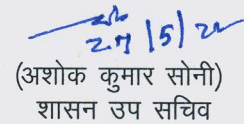 27/5/22
(अशोक कुमार सोनी)
शासन उप सचिव